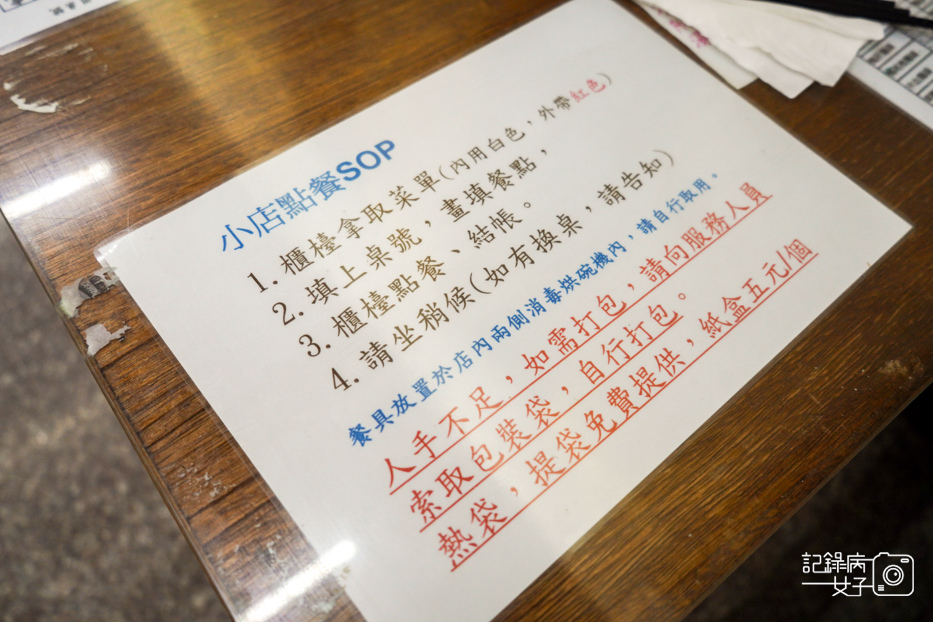 小店點餐SOP
1. 櫃檯拿取菜單(內用白色，外帶紅色)
2. 填上桌號，畫填餐點，
3. 櫃檯點餐、結帳。
4. 請坐稍候(如有換桌，請告知)
餐具放置於店內兩側消毒烘碗機內，請自行取用。
人手不足，如需打包，請向服務人員
索取包裝袋，自行打包。
熱袋，提袋免費提供，紙盒五元/個
記錄病
女子